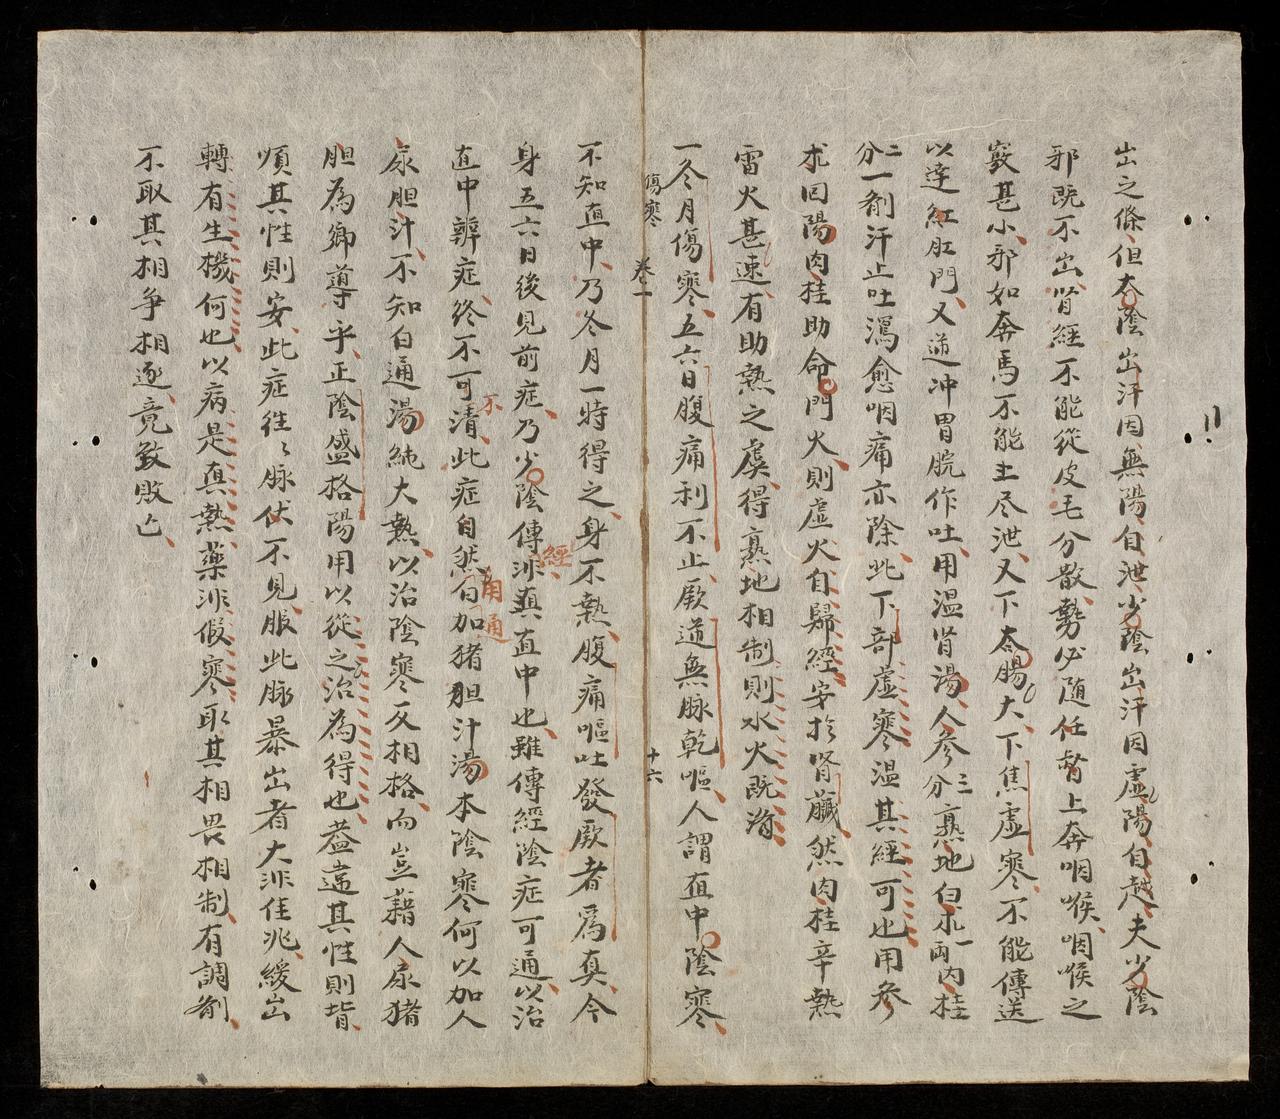 出之條但太陰出汗因無陽自泄少陰出汗因虛陽自越夫少陰
邪既不出肾經不能從皮毛分散勢必随任督上奔咽喉咽喉之
竅甚小邪如奔馬不能主尽泄又下太腸大下焦虛寒不能傳送
以達紅肛門又道冲胃脘作吐用温肾湯人参三分熟地白朮一両肉桂
二分一剤汗止吐瀉愈咽痛亦除此下部虚寒温其經可也用参
朮回陽肉桂助命門火則虛火自歸經安於肾臟然肉桂辛熱
雷火甚速有助熱之虞得熟地相制則水火既済
一冬月傷寒五六日腹痛利不止厥道無脉乾嘔人謂直中陰寒
傷寒 卷一 十六
不知直中乃冬月一時得之身不熱腹痛嘔吐發厥者爲真今
身五六日後見前症乃少陰傳經非真直中也雖傳經陰症可通以治
直中辨症終不可不清此症自然用白通加猪胆汁湯本陰寒何以加人
尿胆汁不知白通湯純大熱以治陰寒反相格而豈藉人尿猪
胆為鄉導乎正陰盛格陽用以從之治為得也蓋違其性則背
順其性則安此症徃〻脉伏不見服此脉暴出者大非佳兆緩出
轉有生機何也以病是真熱藥非假寒取其相畏相制有調剤
不取其相争相逐竟致敗亡